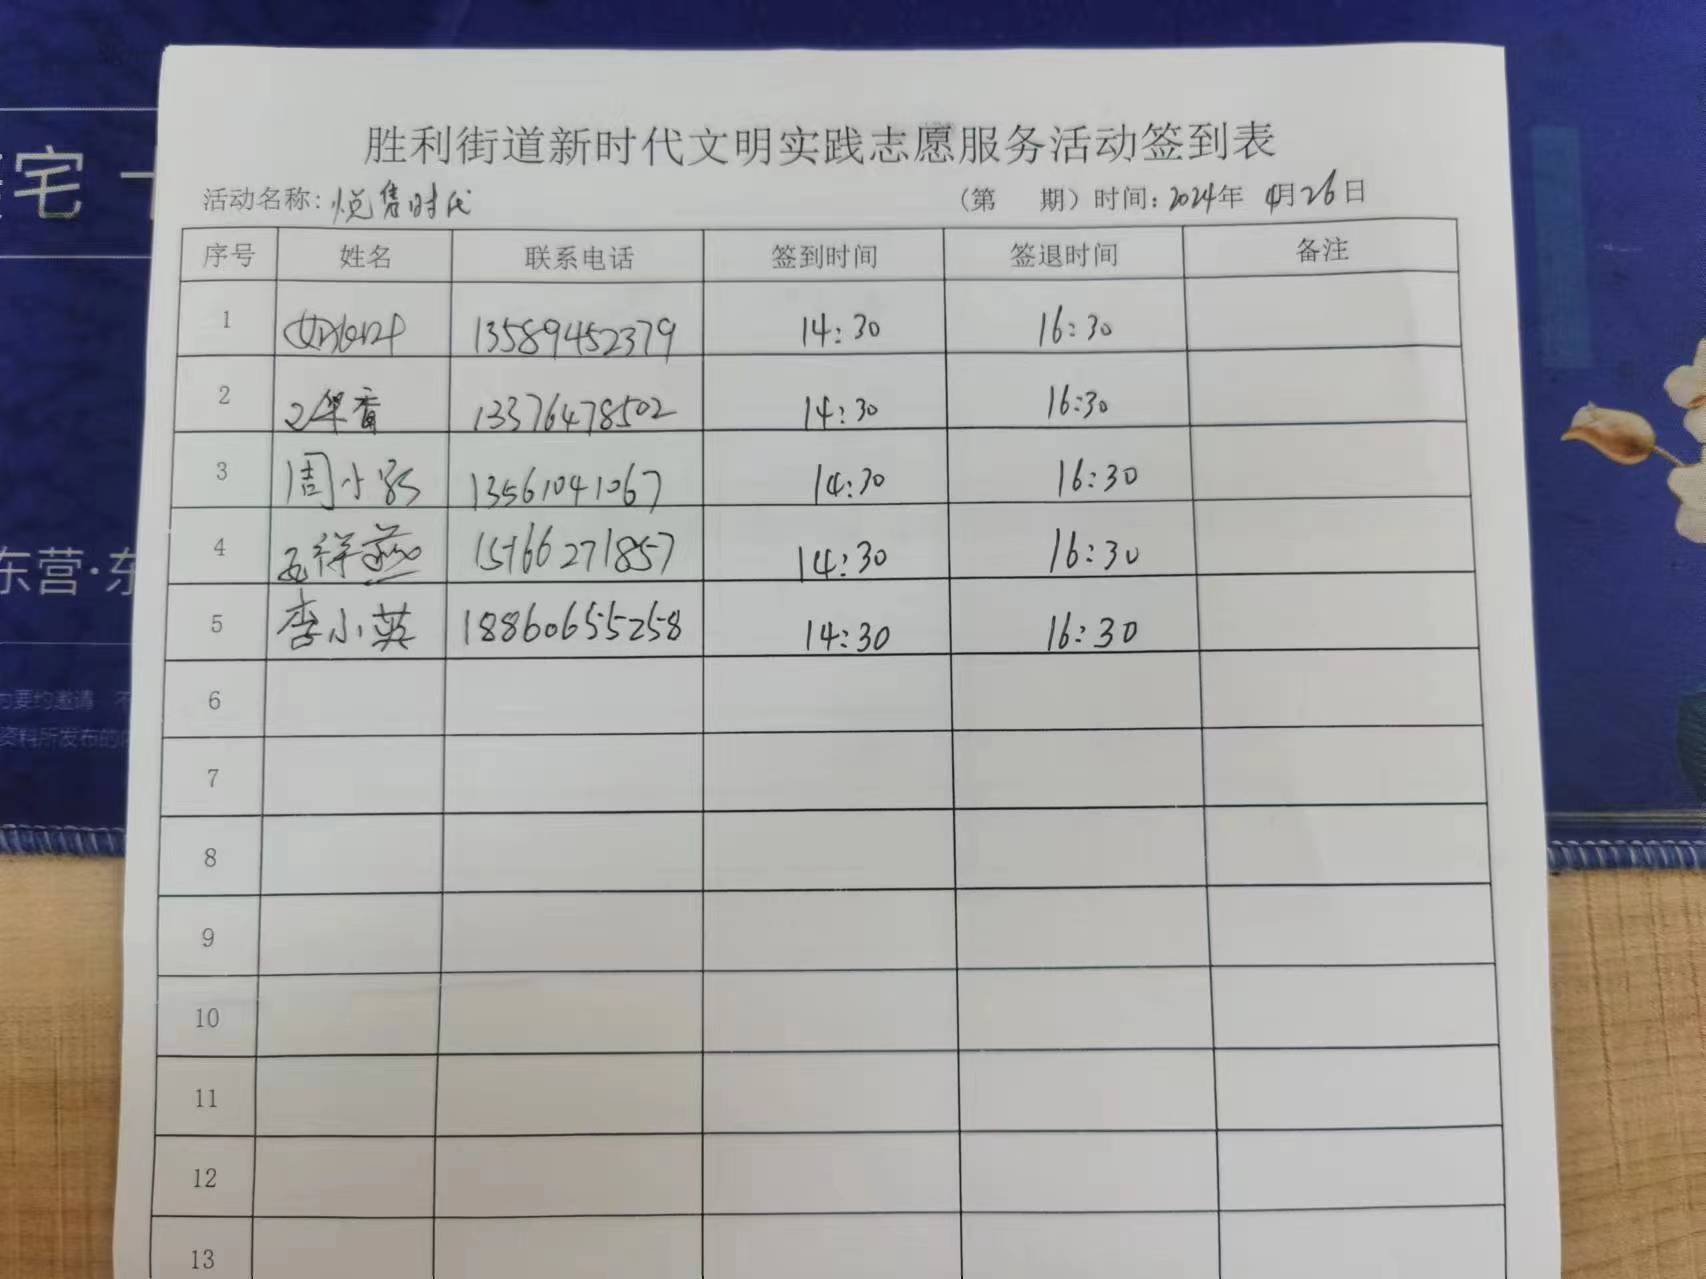 胜利街道新时代文明实践志愿服务活动签到表
活动名称：悦售时代 （第 期）时间：2024年 4月26日
序号 姓名 联系电话 签到时间 签退时间 备注
1 13589452379 14:30 16:30
2 13376478502 14:30 16:30
3 周小 13561041067 14:30 16:30
4 祥燕 15166271857 14:30 16:30
5 李小英 18860655258 14:30 16:30
6
7
8
9
10
11
12
13
宅
东营·东
为要约邀请 不
资料所发布的内